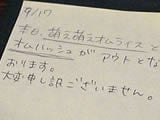 9/17
本日、萌え萌えオムライスと
オムハッシュがアウトとなって
おります。
大変申し訳ございません。